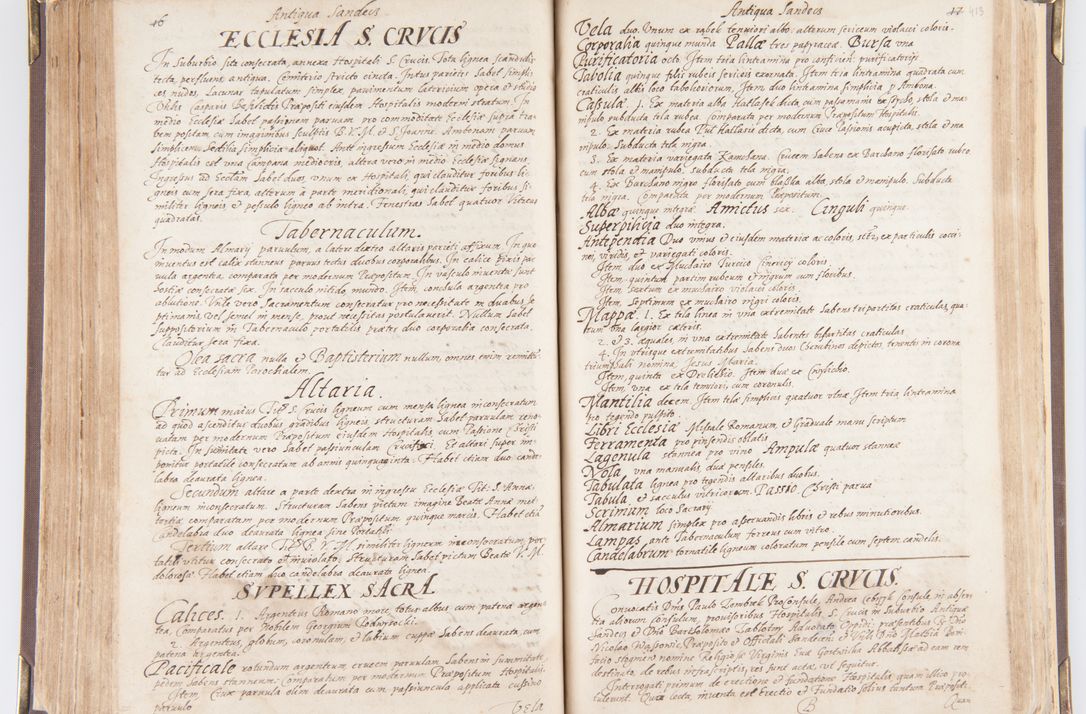 16
Antiqua Sandecz
ECCLESIA S. CRVCIS
In Suburbio sita consecrata, annexa Hospitali S. Crucis. Tota lignea scandulis
tecta, perstans antiqua. Cemiterio stricto cincta. Intus parietes habet simpli,
ces nudos. Lacunar tabulatum simplex, pavimentum latericium opera et studio
Casparis Praepositi eiusdem Hospitalis moderni stratum. In
medio Ecclesiae habet passionem parvam pro commoditate Ecclesiae supra tra,
bem positam cum imaginibus sculptis B.V.M. et S. Joannis. Ambonam parvam
simplicem. Sedilia simplicia aliquot. Ante ingressum Ecclesiae in medio domus
Hospitalis est una Campana mediocris, altera vero in medio Ecclesiae signans.
Ingressus ad Eccliam habet duos, unum ex Hospitali, qui clauditur foribus li,
gneis cum sera fixa, alterum a parte meridionali, qui clauditur foribus si,
militer ligneis, et pessulo ligneo ab intra. Fenestras habet quatuor vitreas
quadratas.
Tabernaculum.
In modum Almary parvulum, a latere dextro altaris parieti affixum. In quo
inventus est calix stanneus parvus tectus duobus corporalibus. In calice pixis par,
vula argentea comparata per modernum Praepositum. In vasculo inventae sunt
hostiae consecratae sex. In sacculo nitido, mundo. Item concula argentea pro
ablutione. Ubi vero Sacramentum conservatur pro necessitate in duabus se,
ptimanis, vel semel in mense, prout necessitas postulaverit. Nullum habet
suppositorium in Tabernaculo portatilis, praeter duo corporalia consecrata.
Clauditur sera fixa.
Olea sacra nulla et Baptisterium nullum, omnes enim remittun,
tur ad Ecclesiam Parochalem.
Altaria.
Primum maius Tit. S. Crucis ligneum cum mensa lignea inconsecratum
ad quod ascenditur duobus gradibus ligneis, structuram habet parvulam reno,
vatam per modernum Praepositum eiusdem Hospitalis cum Passione Christi
picta. In summitate vero habet passiunculam Crucifixi. Et altari super im,
ponitur portatile consecratum ab annis quinquaginta. Habet etiam duo cande,
labra deaurata lignea.
Secundum altare a parte dextra in ingressu Ecclesiae Tit. S. Annae,
ligneum inconsecratum. Structuram habens pictam imagine Beatae Annae met,
tertiae comparatam per modernum Praepositum quinque marcis. Habet etia
candelabra duo deaurata lignea sine Portatili.
Tertium altare Tit. B. V. M. similiter ligneum inconsecratum, por,
tatili utitur consecrato et inviolato. Structuram habet pictam Beatae V. M.
dolorosae. Habet etiam duo candelabra deaurata lignea.
SVPELLEX SACRA
Calices. 1. Argenteus Romano more, totus albus cum patena argen,
tea. Comparatus per Nobilem Georgium Podwysocki.
2. Argenteus, globum, coronulam, et labium cuppae habens deaurata, cum
patena argentea.
Pacificale rotundum argenteum, crucem parvulam habens in summitate
pedem habens stanneum. Comparatum per modernum Praepositum Hospitalis.
Item. Crux parvula olim deaurata cum passiuncula applicata cussino
parvulo
Vela
Antiqua Sandecz
17 413
Vela duo. Unum ex rąbek tenuiori albo: alterum sericeum violacei coloris.
Corporalia quinque munda Pallae tres papyraceae. Bursa una
Purificatoria octo. Item tria linteamina pro
Tabolia quinque filis rubeis sericeis exornata. Item tria linteamina quadrata cum
craticulis albis loco taboliorum. Item duo linteamina simplicia pro Ambona.
Casulae. 1. Ex materia alba Hatlasek dicta cum passamanis ex serico, stola et ma,
nipulo subducta tela rubea comparata per modernum Praepositum Hospitalis.
2. Ex materia rubea Pul Hatlasie dicta, cum Cruce Passionis acupicta, stola et ma,
nipulo. Subducta tela nigra.
3. Ex materia variegata Kamchana. Crucem habens ex Barchano florisato rubeo
cum stola et manipulo. Subducta tela nigra.
4. Ex Barchano nigro florisato cum alba, stola et manipulo. Subducta
tela nigra. Comparata per modernum Praepositum.
Albae quinque integrae. Amictus sex. Cinguli quinque.
Superpilicia duo integra.
Antipendia Duo unius et eiusdem materiae ac coloris, sctz. ex particulis cocci,
nei, viridis, et variegati coloris.
Item, duo ex Muchairo Turcico coloris.
Item, quintum partim rubeum et nigrum cum floribus.
Item, Sextum ex muchairo violacei coloris.
Item, Septimum ex muchairo nigri coloris.
Mappae. 1. Ex tela linea in una extremitate habens tripartitas craticulas, qua,
trum una largior caeteris.
2. et 3. aequales in una extremitate habentes bipartitas craticulas
4. In utrisque extremitatibus habens duos Cherubinos depictos tenentes in corona
triumphali nomina Jesus Maria.
Item, quinta ex Item duae ex Cwylicho.
Item, una ex tela tenuiori, cum coronulis.
Mantilia decem. Item telae simplicis quatuor ulnae. Item tria linteamina
pro tegendo pulpito.
Libri Ecclesiae Missale Romanum, et Graduale manu scriptum
Ferramenta pro pinsendis oblatis
Lagenula stannea pro vino Ampulae quatuor stanneae
Nola una manualis, duae pensiles.
Tabulata lignea pro tegendis altaribus duobus.
Tabula et sacculus vitricorum. Passio Christi parva
Scrinium loco Sacrary.
Almarium simplex pro asservandis libris et rebus minutioribus.
Lampas ante Tabernaculum ferreus cum vitro.
Candelabrum tornatile ligneum coloratum pensile cum septem candelis.
HOSPITALE S. CRVCIS.
Convocatis Dnis Paulo Zambrek Proconsule, Andrea Consule in absen,
tia aliorum Consulum, provisoribus Hospitalis S. Crucis in Suburbio Antiquae
Sandecz et Dno Bartholomaeo Advocato Oppidi: praesentibus Rdo Dno
Nicolao Wassowic Praeposito et Officiali Sandecen et Dno Mathia Bari,
Stogniew nomine Religiosae Virginis Evae Abbatissae ad eam rem
destinato, de rebus infrascriptis, res sunt acta, ut sequitur.
Interrogati primum de erectione et fundatione Hospitalis, quam illico pro,
tulerunt. Qua lecta, inventa est Erectio et Fundatio solius tantum Praepositi.
B
Quam